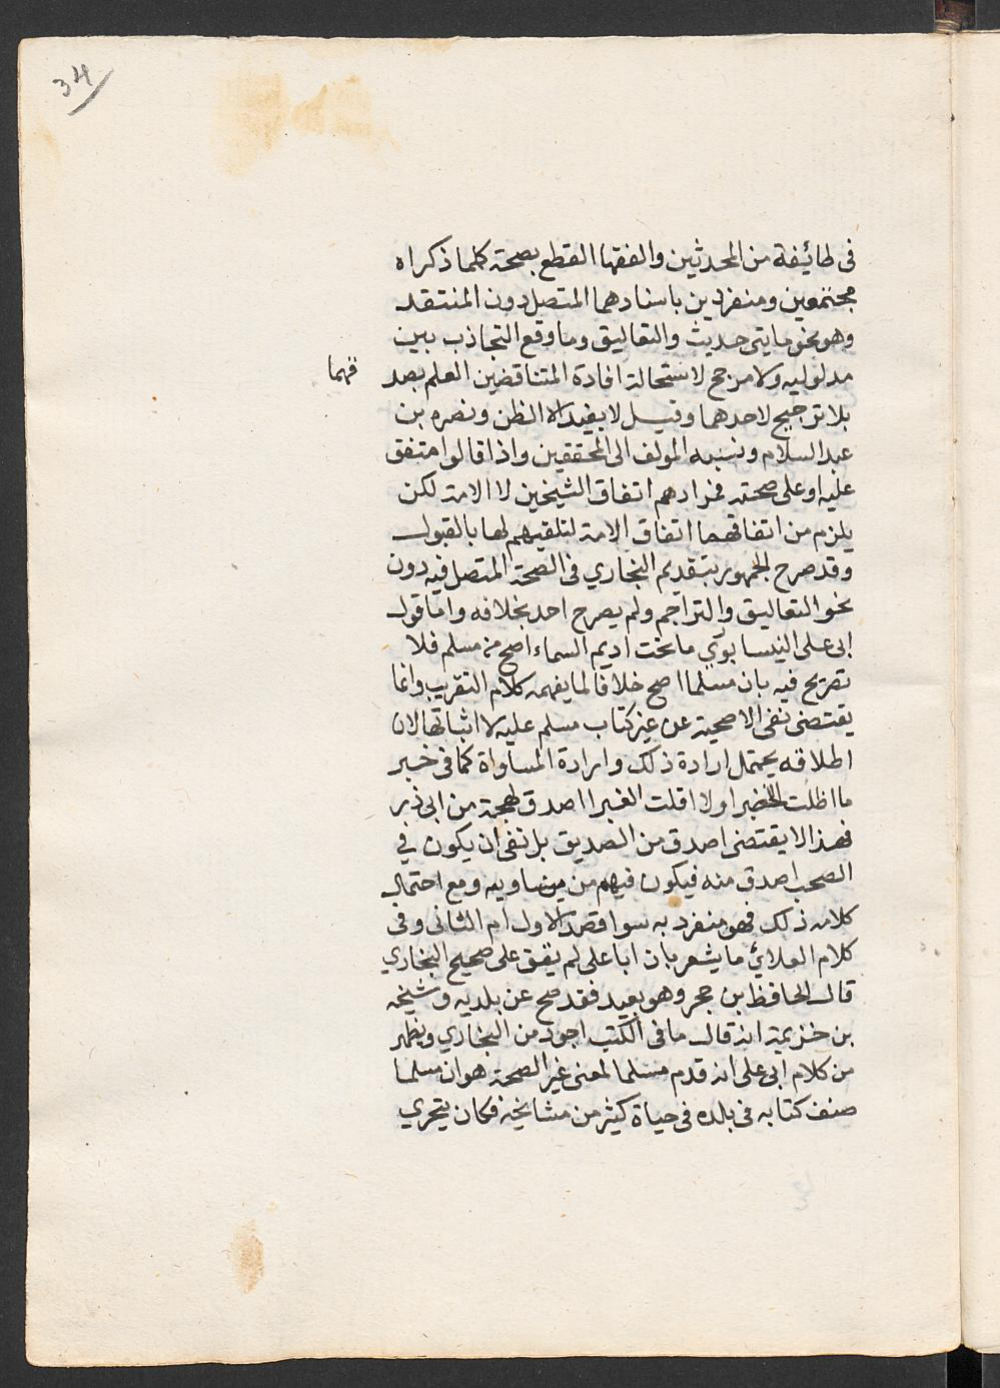 34
فى طائيفة من المحدثين والفقها القطع بصحة كلما ذكراه
مجتمعين ومنفردين باسنادهما المتصل دون المنتقد
وهو نحو مايتى حديث والتعاليق وما وقع التجاذب بين
مدلوليه ولا مرجح لاستحالة افادة المتناقضين العلم بصد
قهما
بلا ترجيح لاحدهما وقيل لا يفيد الا الظن ونصره بن
عبد السلام ونسبه المولف الى المحققين واذا قالوا متفق
عليه او على صحته فمرادهم اتفاق الشيخين لا الامة لكن
يلزم من اتفاقهما اتفاق الامة لتلقيهم لها بالقبول
وقد صرح الجمهور بتقديم البخاري فى الصحة المتصل فيه دون
نحو التعاليق والتراجم ولم يصرح احد بخلافه واما قول
ابى على النيسابورى ما تحت اديم السماء اصح من مسلم فلا
تصريح فيه بان مسلما اصح خلافا لما يفهمه كلام التقريب وانما
يقتضى نفى الاصحية عن غير كتاب مسلم عليه لا اثباتها لان
اطلاقه يحتمل ارادة ذلك وارادة المساواة كما فى خبر
ما اظلت الخضرا ولا اقلت الغبرا اصدق لهجة من ابى ذر
فهذا لا يقتضى اصدق من الصديق بل نفى ان يكون في
الصحب اصدق منه فيكون فيهم من يساويه ومع احتمال
كلامه ذلك فهو منفرد به سوا قصد الاول ام الثانى وفى
كلام العلائي ما يشعر بان ابا على لم يقف على صحيح البخاري
قال الحافظ ابن حجر وهو بعيد فقد صح عن بلديه وشيخه
بن خزيمة انه قال ما فى الكتب اجود من البخاري ويظهر
من كلام ابى على انه قدم مسلما لمعنى غير الصحة هو ان مسلما
صنف كتابه فى بلده فى حياة كثير من مشايخه فكان يتحري